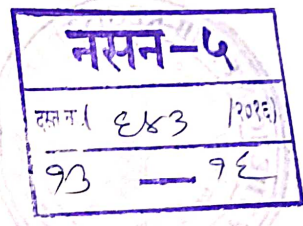 नसन-५
दस्त न.( ६४३ /२०१६)
१३ — १६